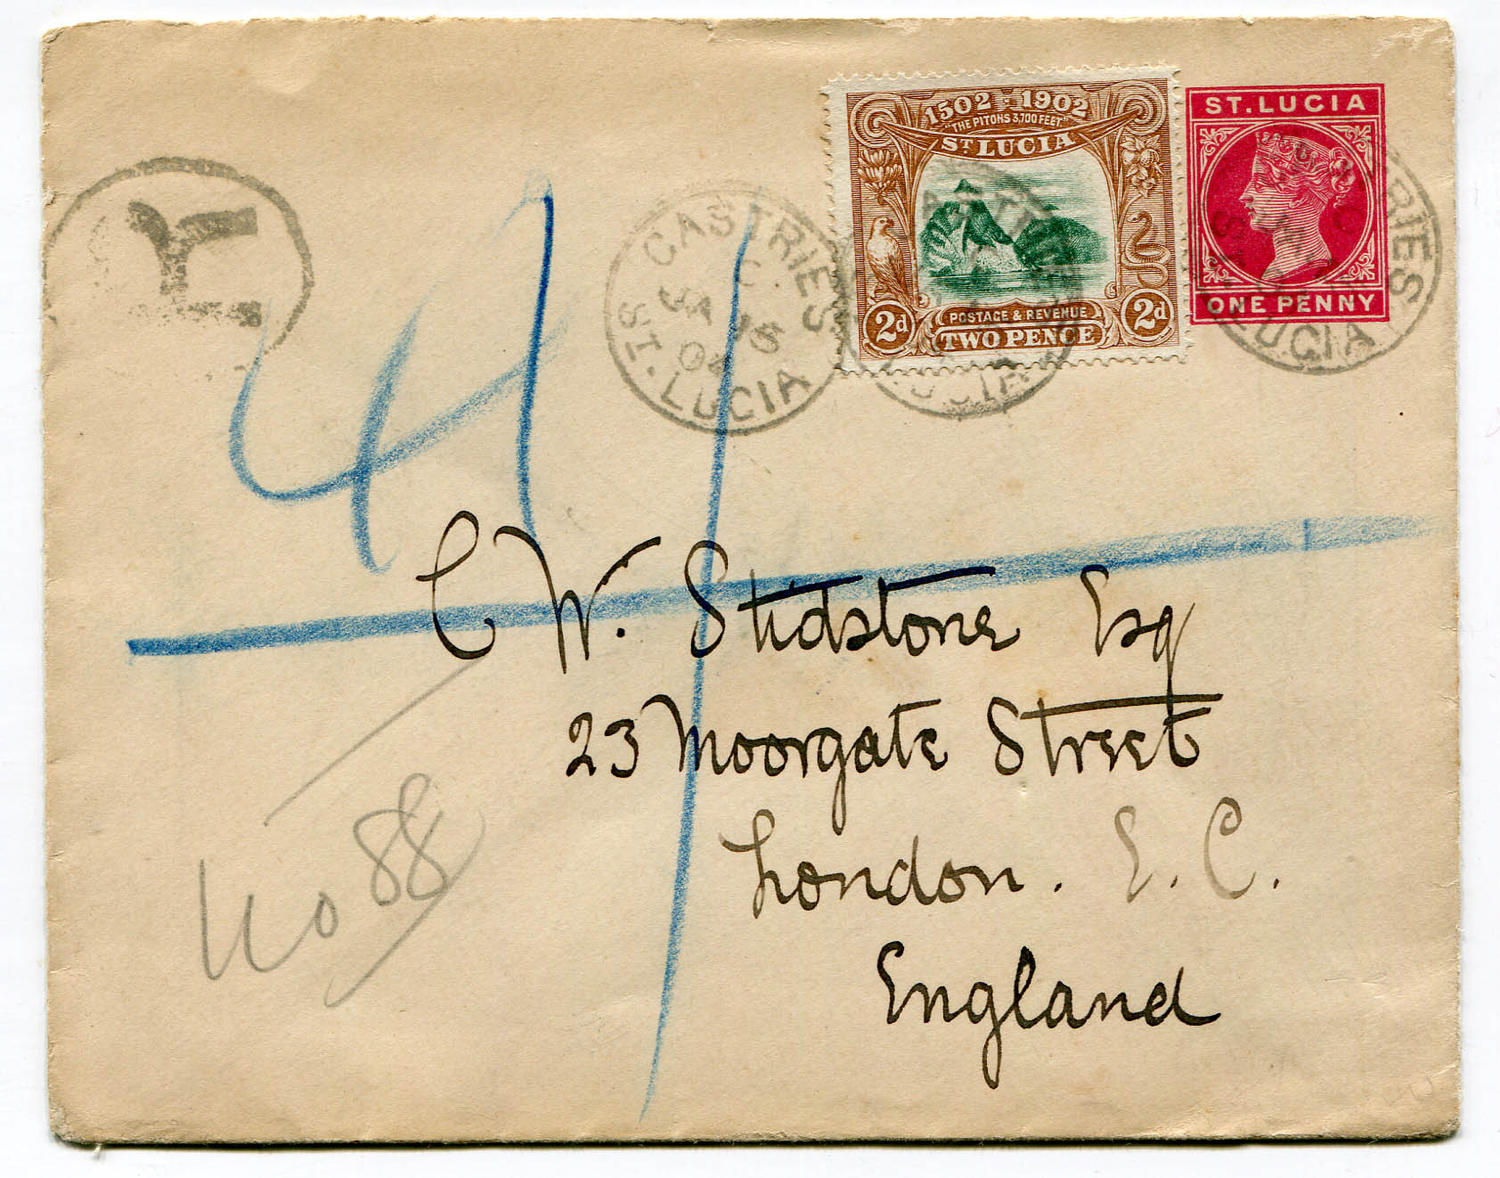 1502 - 1902
"THE PITONS 3,700 FEET"
ST LUCIA
2d
POSTAGE & REVENUE
2d
TWO PENCE
ST. LUCIA
ONE PENNY
R
CASTRIES
C
JA 15
04
ST. LUCIA
CASTRIES
ST. LUCIA
C W. Stidstone Esq
23 Moorgate Street
London. E. C.
England
No 88